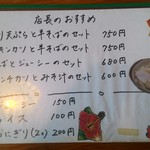 店長のおすすめ
り天ぷらと半そばのセット 750円
キンカツと半そばのセット 750円
ばとジューシーのセット 680円
ンチカツとみそ汁のセット 600円
ー 150円
イス 100円
おにぎり(2ヶ) 200円